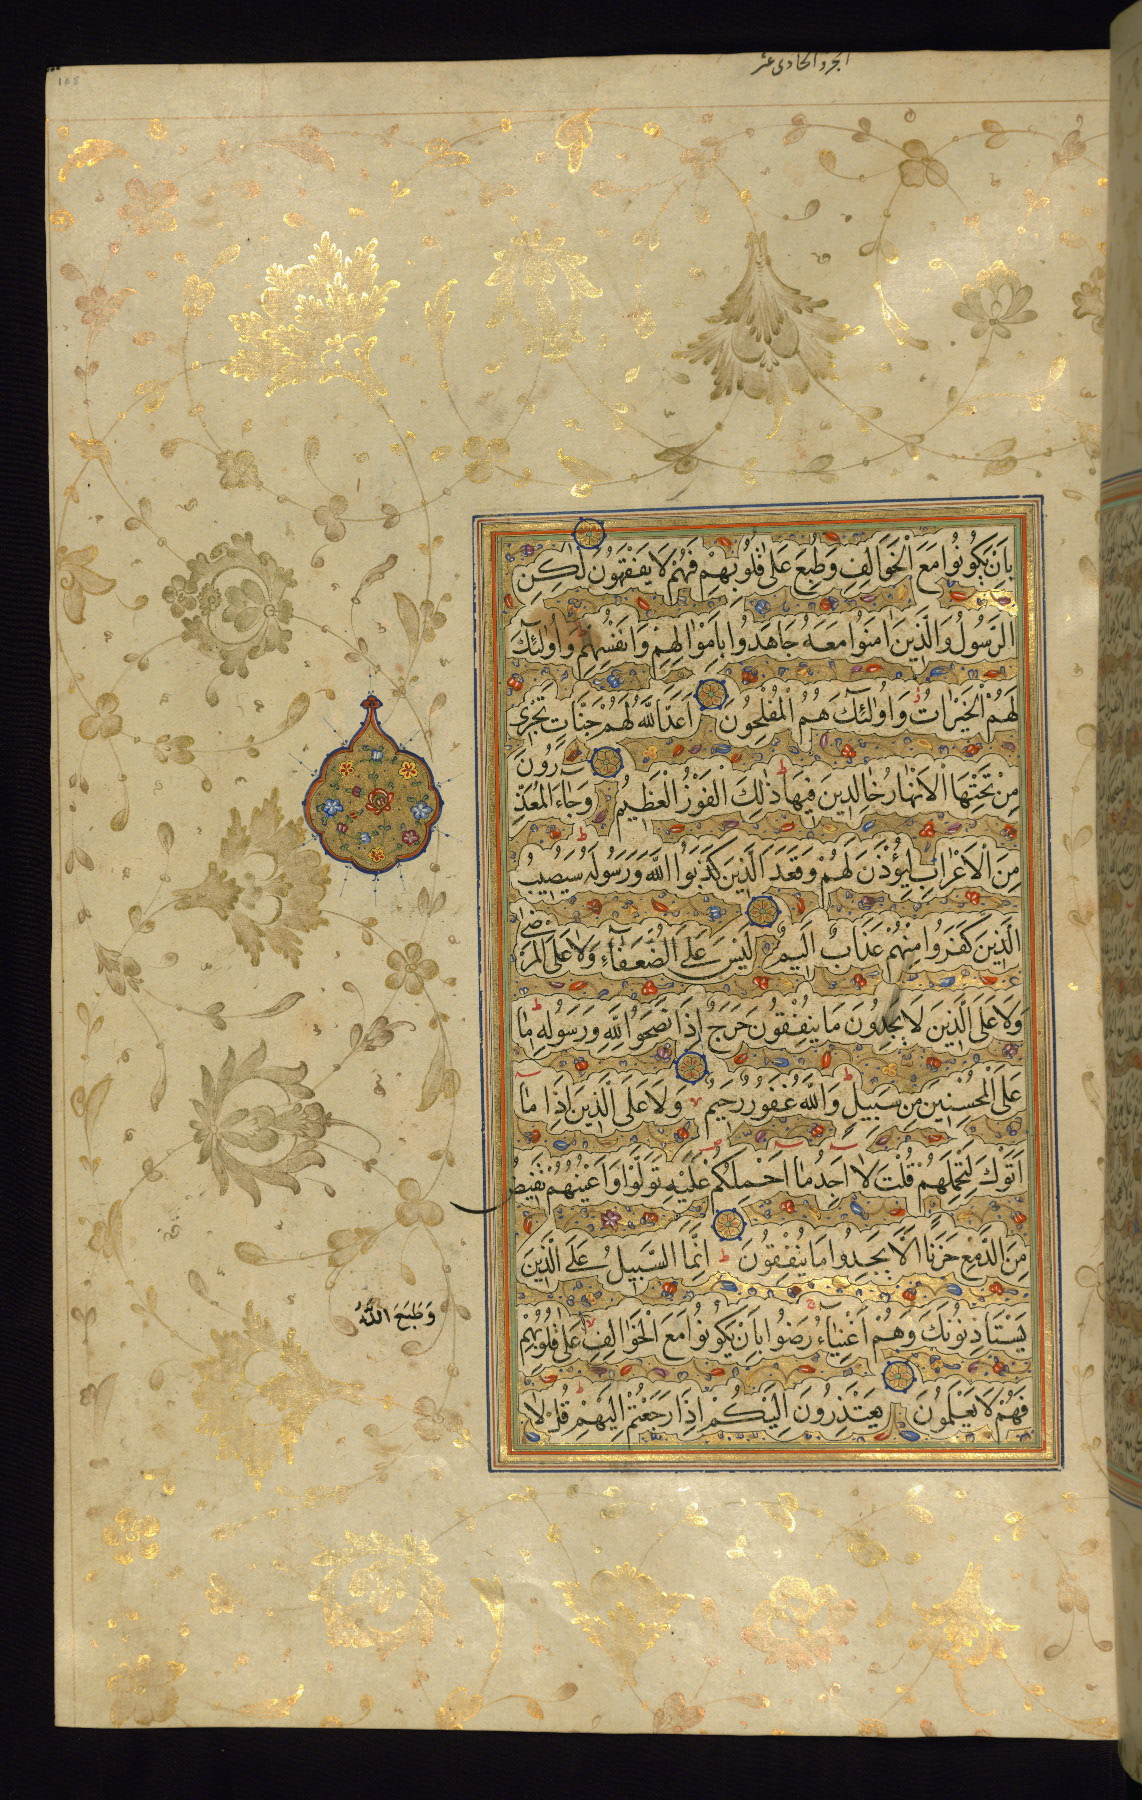 الجزو الحادی عشر
١٨٥
بِاَنْ يَكُونُوا مَعَ الْخَوَالِفِ وَطُبِعَ عَلٰى قُلُوبِهِمْ فَهُمْ لَا يَفْقَهُونَ لٰكِنِ
الرَّسُولُ وَالَّذِينَ اٰمَنُوا مَعَهُ جَاهَدُوا بِاَمْوٰالِهِمْ وَاَنْفُسِهِمْ وَاُولٰئِكَ
لَهُمُ الْخَيْرٰاتُ وَاُولٰئِكَ هُمُ الْمُفْلِحُونَ اَعَدَّ اللّٰهُ لَهُمْ جَنَّاتٍ تَجْرِى
مِنْ تَحْتِهَا الْاَنْهٰارُ خٰالِدِينَ فِيهٰا ذٰلِكَ الْفَوْزُ الْعَظِيمُ وَجٰآءَ الْمُعَذِّرُونَ
مِنَ الْاَعْرٰابِ لِيُؤْذَنَ لَهُمْ وَقَعَدَ الَّذِينَ كَذَبُوا اللّٰهَ وَرَسُولَهُ سَيُصِيبُ
الَّذِينَ كَفَرُوا مِنْهُمْ عَذَابٌ اَلِيمٌ لَيْسَ عَلَى الضُّعَفٰآءِ وَلَا عَلَى الْمَرْضٰى
وَلَا عَلَى الَّذِينَ لَا يَجِدُونَ مَا يُنْفِقُونَ حَرَجٌ اِذَا نَصَحُوا لِلّٰهِ وَرَسُولِهِ مٰا
عَلَى الْمُحْسِنِينَ مِنْ سَبِيلٍ وَاللّٰهُ غَفُورٌ رَحِيمٌ وَلَا عَلَى الَّذِينَ اِذَا مٰا
اَتَوْكَ لِتَحْمِلَهُمْ قُلْتَ لٰا اَجِدُ مٰا اَحْمِلُكُمْ عَلَيْهِ تَوَلَّوْا وَاَعْيُنُهُمْ تَفِيضُ
مِنَ الدَّمْعِ حَزَنًا اَلَّا يَجِدُوا مَا يُنْفِقُونَ اِنَّمَا السَّبِيلُ عَلَى الَّذِينَ
يَسْتَاْذِنُونَكَ وَهُمْ اَغْنِيٰآءُ رَضُوا بِاَنْ يَكُونُوا مَعَ الْخَوٰالِفِ عَلٰى قُلُوبِهِمْ
وَطَبَعَ اللّٰهُ
فَهُمْ لَا يَعْلَمُونَ يَعْتَذِرُونَ اِلَيْكُمْ اِذَا رَجَعْتُمْ اِلَيْهِمْ قُلْ لَا